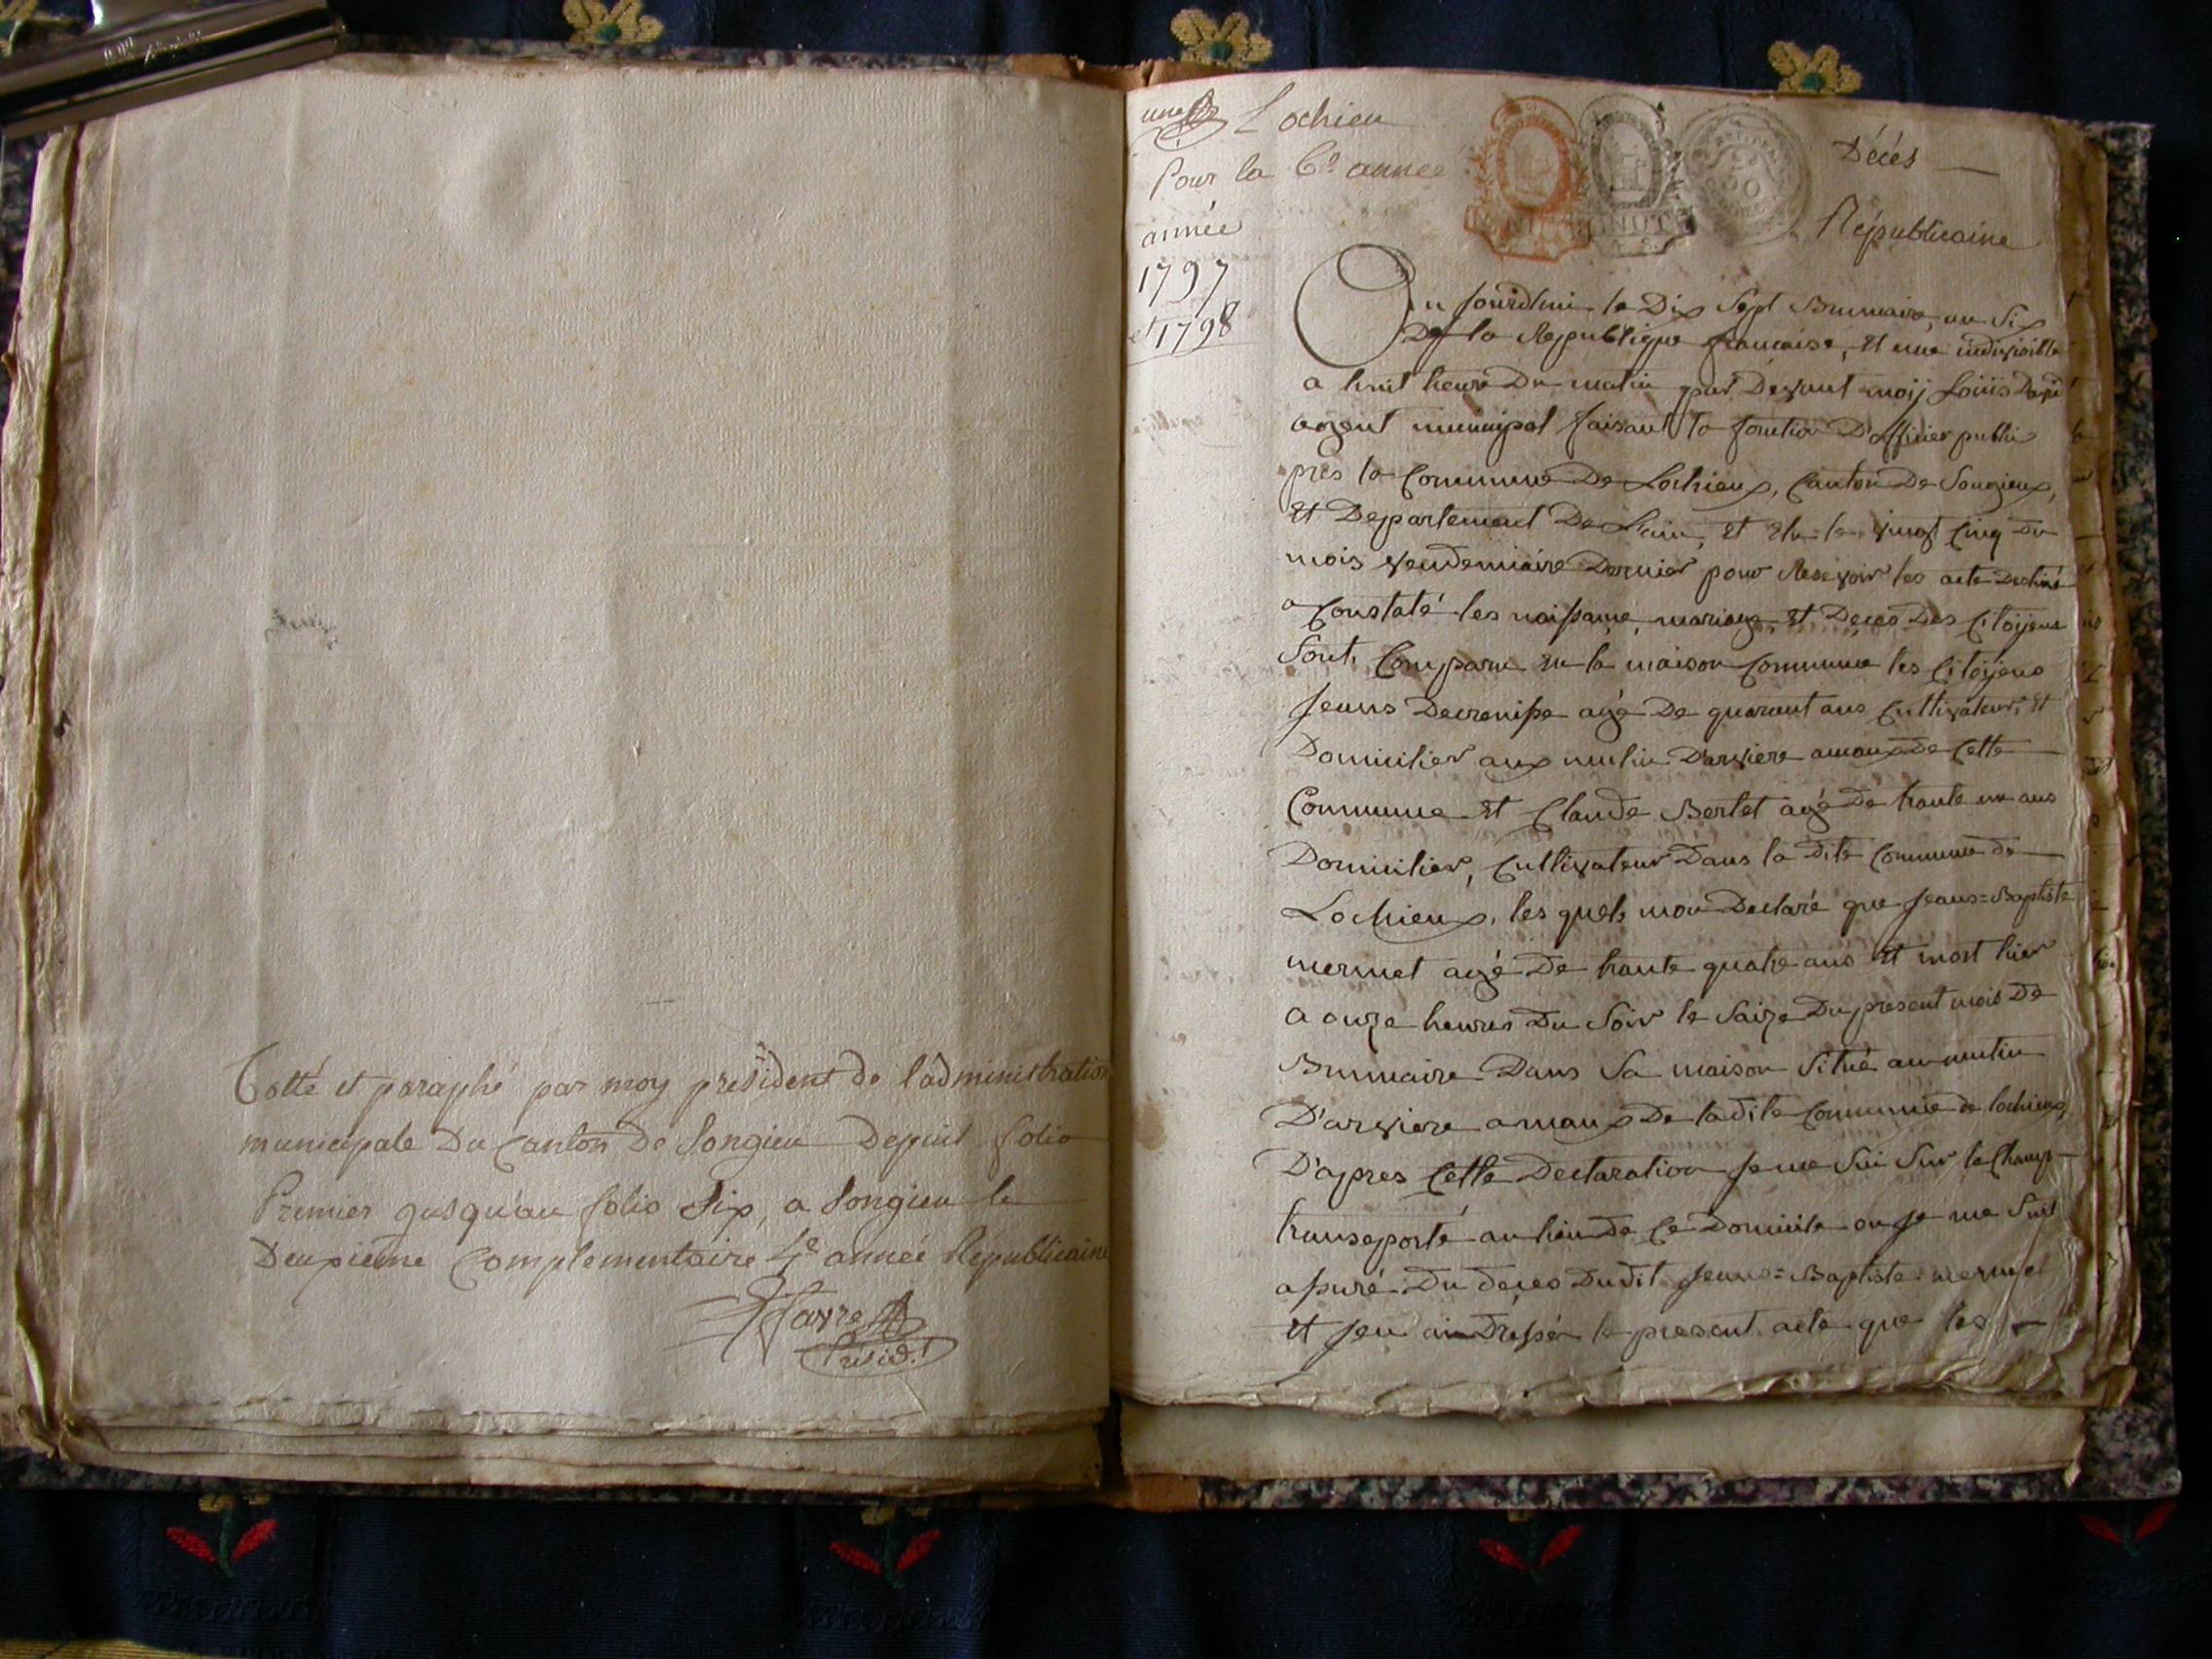 Cotté et paraphé par moy président de l'administration
municipale Du Canton De Songieu Depuis folio
Premier jusqu'au folio Six, a Songieu le
Deuxieme Complementaire 4e année Républicaine
Favre
Présid.t
une Lochieu
Décés
Pour la 6e année
Républicaine
année
1797
et 1798
Du Jourdhui le Dix Sept Brumaire, an Six
De la Republique francaise, et une indivisible
a huit heure Du matin par Devant moij Loüis David
agent municipal faisant la fonction D'officier public
pres la Commune De Lochieux, Canton De Songieux,
et Departement De L'ain, et elu le vingt Cinq Du
mois vendemiaire Dernier pour Resevoir les acte Destiné
a Constaté les naissance, mariage, et Deces Des Citoijens
Sont Comparu en la maison Commune les Citoijens
Jeans Decronisse agé De quarant ans Cultivateur, et
Domicilier aux mulin D'arviere amaux De Cette
Commune et Claude Bertet agé De trante un ans
Domicilier, Cultivateur Dans la Dite Commune de
Lochieux, les quels mon Declaré que Jeans=Baptiste
mermet agé De trante quatre ans et mort hier
a onze heures Du Soir le Saize Du present mois De
Brumaire Dans Sa maison Situé au mulin
D'arviere amaux De la dite Commune de lochieux,
D'apres Cette Declaration Je me Sui Sur le Champ
transporté au lieu de Ce Domicile ou Je me Suit
assuré Du deces Dudit Jeans=Baptiste mermet
et Jeu ai Dressér le present acte que les